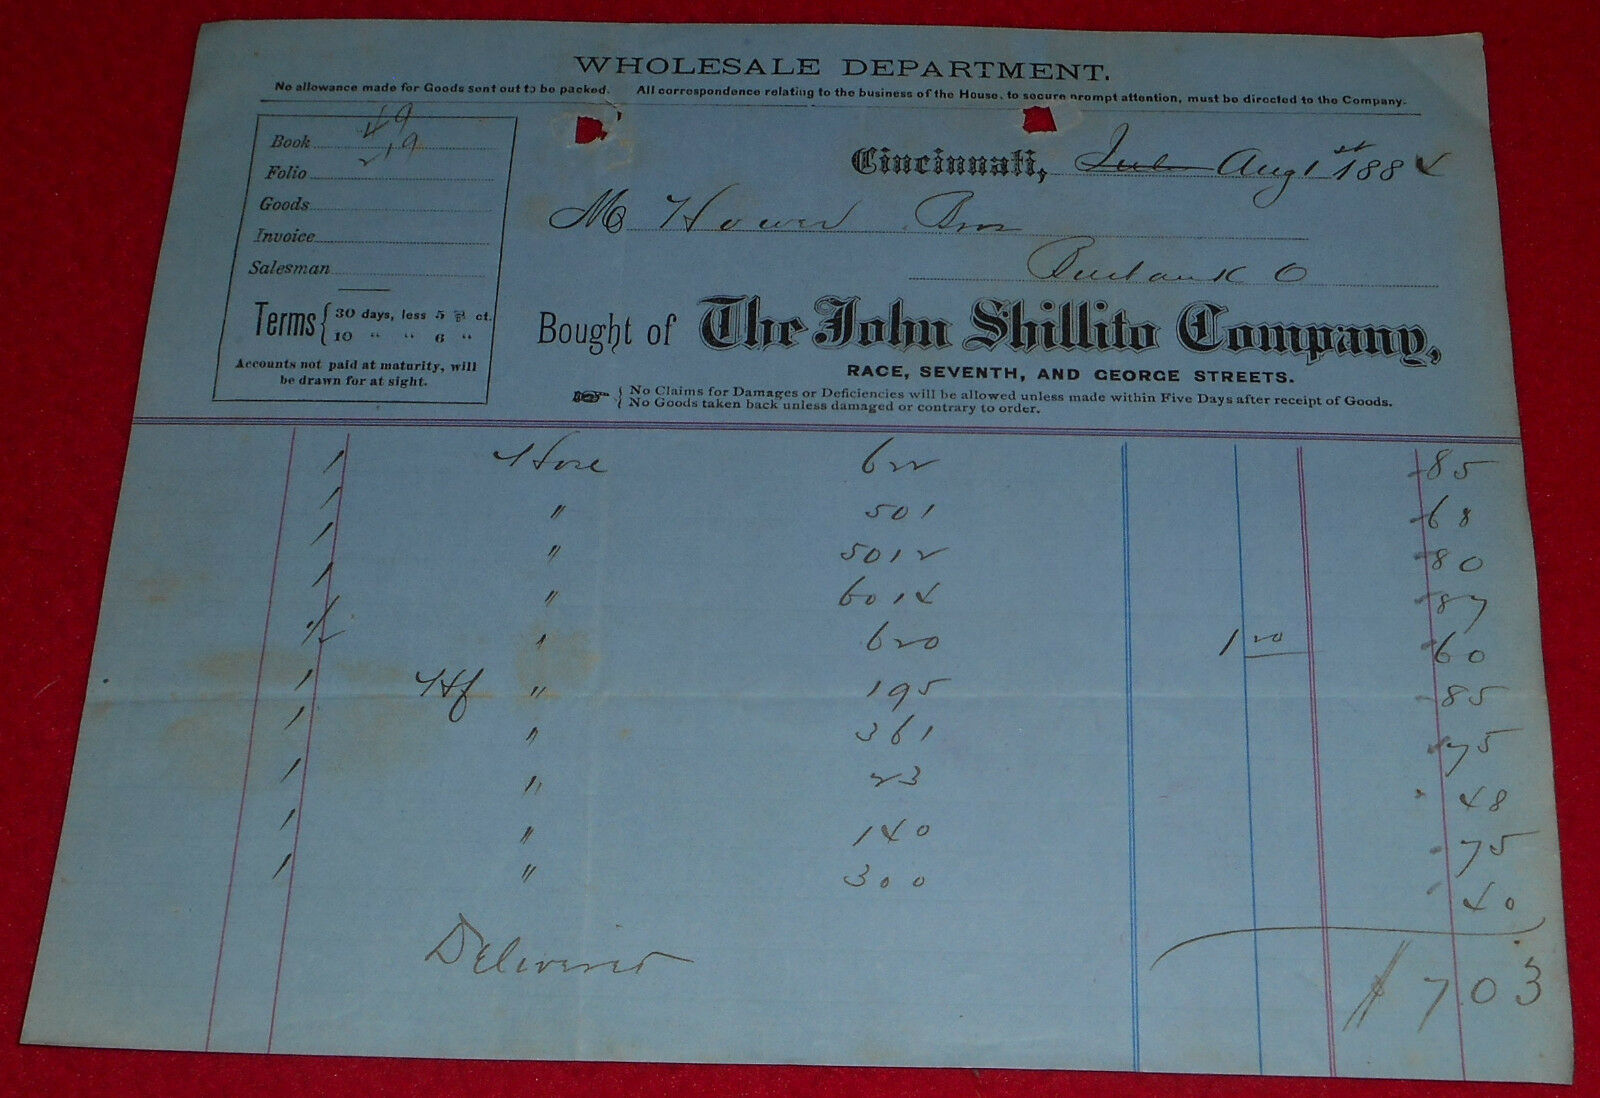 WHOLESALE DEPARTMENT.
No allowance made for Goods sent out to be packed. All correspondence relating to the business of the House, to secure prompt attention, must be directed to the Company.
Book 49
219
Folio
Goods
Invoice
Salesman
Terms { 30 days, less 5 pr ct.
10 " " 6 "
Accounts not paid at maturity, will
be drawn for at sight.
Cincinnati, Aug 1st 1884
M Bros
Burbank O
Bought of The John Shillito Company,
RACE, SEVENTH, AND GEORGE STREETS.
{ No Claims for Damages or Deficiencies will be allowed unless made within Five Days after receipt of Goods.
{ No Goods taken back unless damaged or contrary to order.
1 Hose 622 85
1 " 501 68
1 " 5012 80
1 " 6014 87
1/2 " 620 1 20 60
1 Hf " 195 85
1 " 361 75
1 " 23 48
1 " 140 75
1 " 300 40
Delivered
$ 703